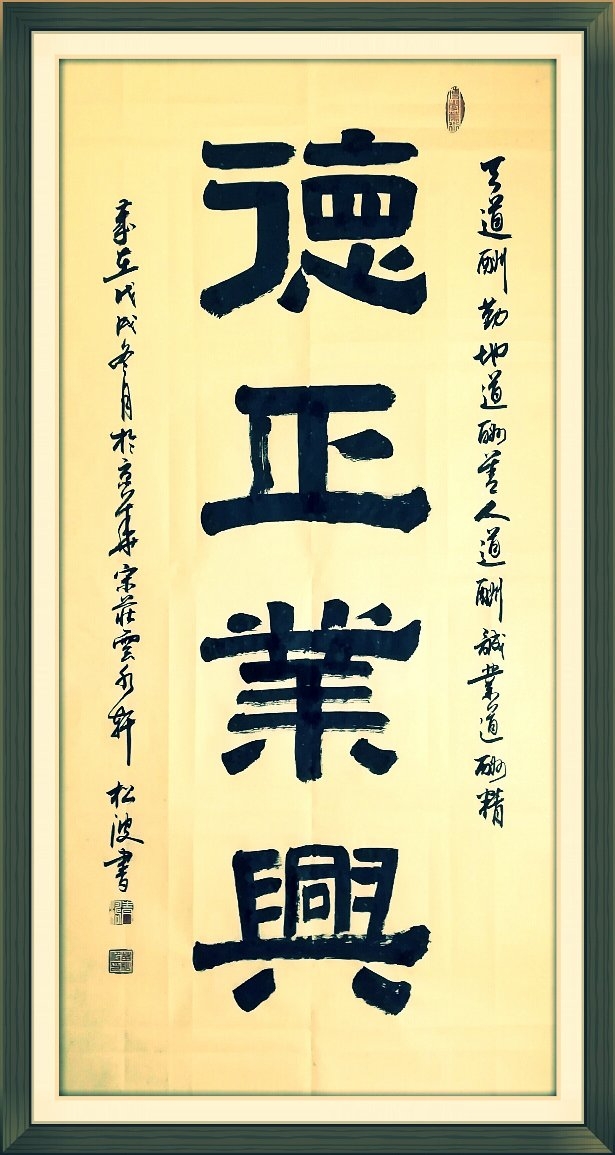 天道酬勤地道酬善人道酬誠業道酬精
德正業興
歲在戊戌冬月於京華宋莊雲水軒 松波書